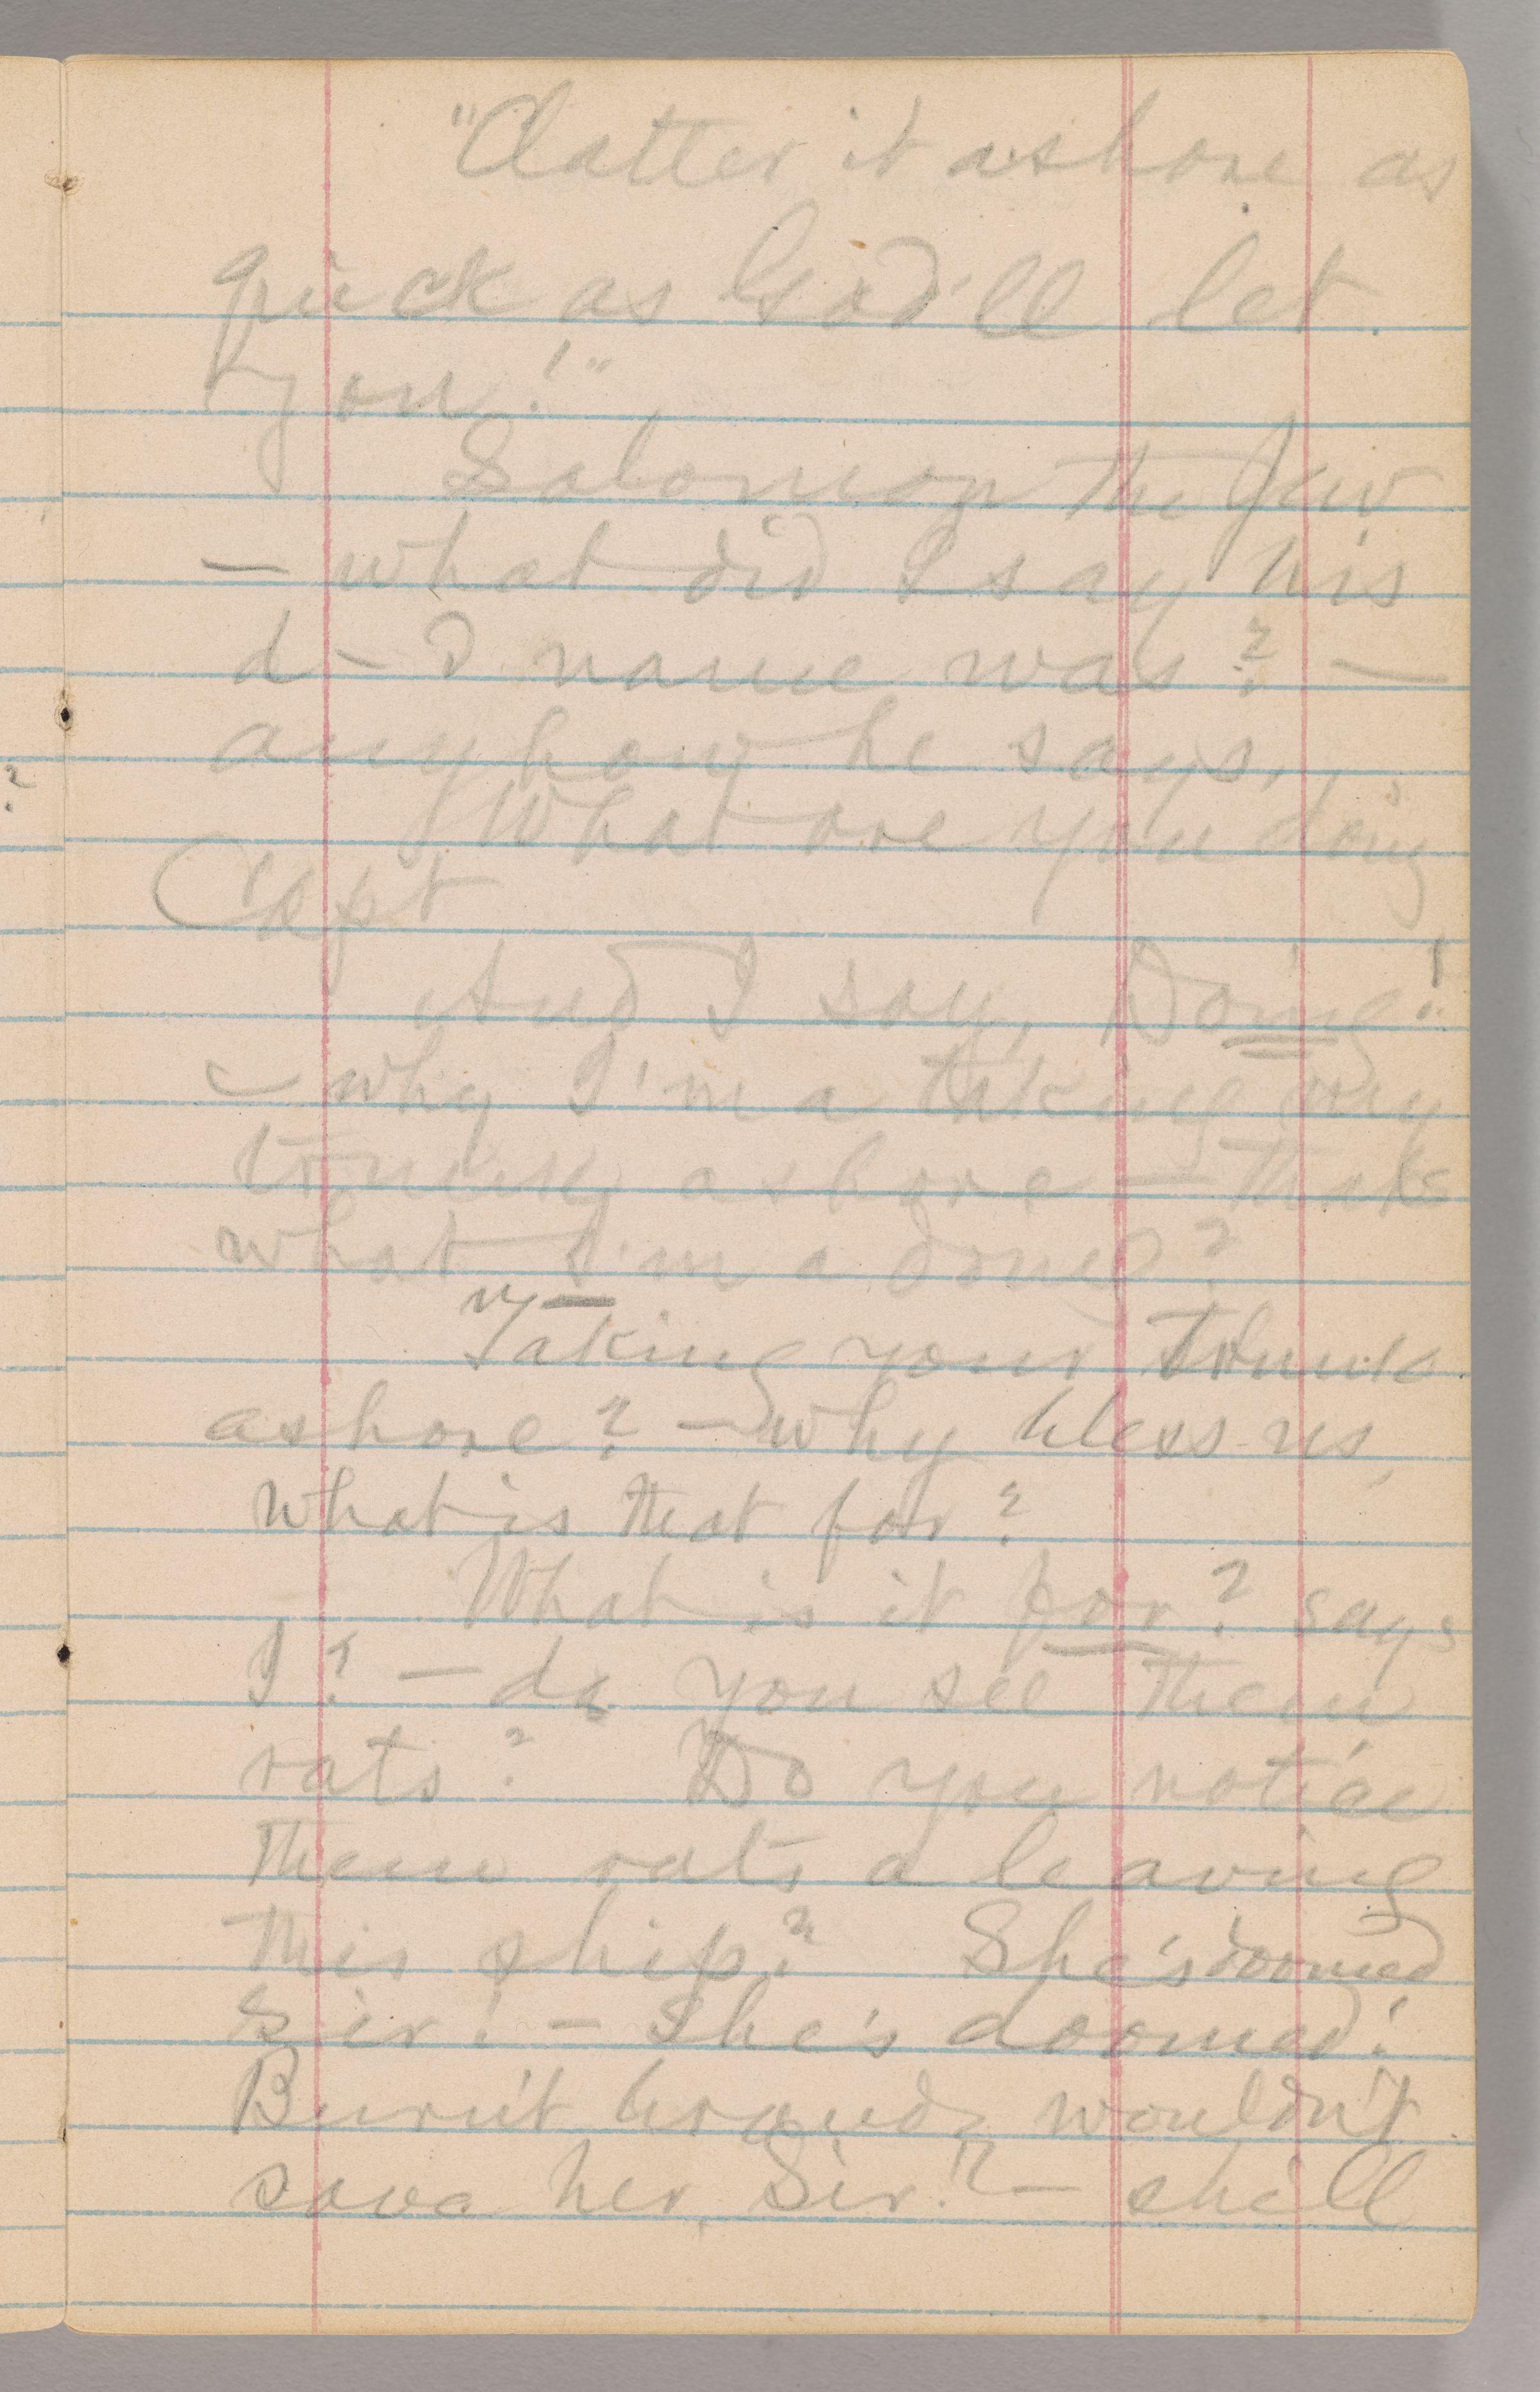 "Clatter it ashore as
quick as God'll let
you!"
Solomon the Jew
— what did I say his
d—d name was? —
anyhow he says,
What are you doing
Capt
And I say, Doing!
— why I'm a taking my
trunk ashore — that's
what I'm a doing?
Taking your trunk
ashore? — why bless us,
what is that for?
What is it for? says
I? — do you see them
rats? Do you notice
them rats a leaving
this ship? She's doomed
sir! — She's doomed!
Burn't brandy wouldn't
save her, Sir! — she'll